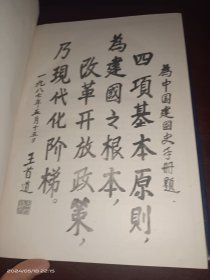 為中国建国史手册題
四項基本原則，
為建國之根本，
改革开放政策，
乃現代化阶梯。
一九八七年五月十五日
王首道
2024/05/18 15:20